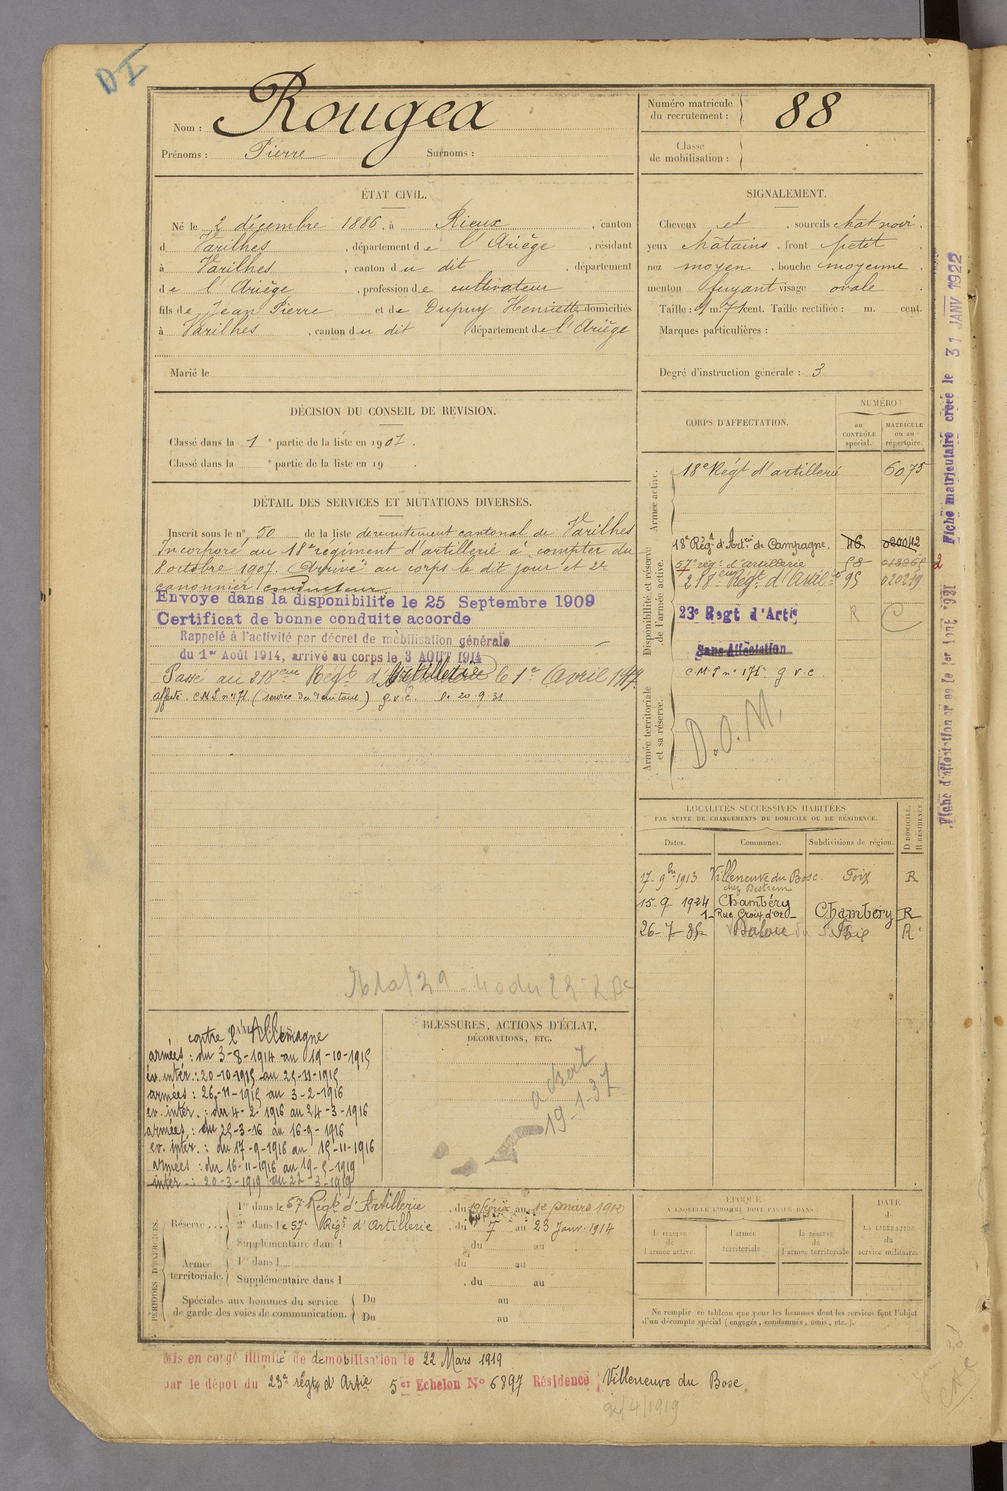 DI
Nom : Rougea
Prénoms : Pierre Surnoms :
Numéro matricule du recrutement : 88
Classe de mobilisation :
ÉTAT CIVIL.
Né le 2 décembre 1886, à Rieux, canton
d Varilhes, département de l'Ariège, résidant
à Varilhes, canton du dit, département
de l'Ariège, profession de cultivateur
fils de Jean Pierre et de Dupuy Henriette domiciliés
à Varilhes, canton du dit département de l'Ariège
Marié le
SIGNALEMENT.
Cheveux et, sourcils chat noir.
yeux châtains, front petit
nez moyen, bouche moyenne.
menton fuyant visage ovale.
Taille : 1 m. 71 cent. Taille rectifiée : m. cent.
Marques particulières :
Degré d'instruction générale : 3
DÉCISION DU CONSEIL DE REVISION.
Classé dans la 1e partie de la liste en 1907.
Classé dans la e partie de la liste en 19 .
DÉTAIL DES SERVICES ET MUTATIONS DIVERSES.
Inscrit sous le n° 50 de la liste de recrutement cantonal de Varilhes
Incorporé au 18e régiment d'artillerie à compter du
8 octobre 1907. Arrivé au corps le dit jour et 2e
canonnier conducteur.
Envoye dans la disponibilite le 25 Septembre 1909
Certificat de bonne conduite accorde
Rappelé à l'activité par décret de mobilisation générale
du 1er Août 1914, arrivé au corps le 3 AOUT 1914
Passé au 218eme Régt d'Artillerie le 1er Avril 1917.
affecté. C.M.P. n° 171. g.v.c. le 20.9.31
CORPS D'AFFECTATION.
NUMÉRO :
au CONTRÔLE spécial.
MATRICULE ou au répertoire.
Armée active.
18e Régt d'artillerie 6075
Disponibilité et réserve de l'armée active.
18e Régt d'Artie de Campagne. 46 020042
57e régt d'artillerie
218eme Régt d'Artil. 95 020219
23e Regt d'Artie R C
Sans Affectation
C.M.P. n° 171. g v c.
Armée territoriale et sa réserve.
D.O.M.
Fiche matriculaire créée le 31 JANV 1922
LOCALITÉS SUCCESSIVES HABITÉES
PAR SUITE DE CHANGEMENTS DE DOMICILE OU DE RÉSIDENCE.
Dates. Communes. Subdivisions de région. D DOMICILE. R RÉSIDENCE.
17-9bre 1913 Villeneuve du Bosc. Foix R
15-9-1924 Chambéry
1-Rue Croix d'Or- Chambéry R
26-7- Foix R
contre l'Allemagne
armées : du 3-8-1914 au 19-10-1915
ev. inter. : 20-10-1915 au 25-11-1915
armées : 26-11-1915 au 3-2-1916
ev. inter. : du 4-2-1916 au 24-3-1916
armées : du 25-3-16 au 16-9-1916
ev. inter. : du 17-9-1916 au 15-11-1916
armées : du 16-11-1916 au 19-3-1919
inter : 20-3-1919 au 22-3-1919
BLESSURES, ACTIONS D'ÉCLAT,
DÉCORATIONS, ETC.
19-1-37
PÉRIODES D'EXERCICES.
Réserve....
1re dans le 57e Régt d'Artillerie, du au 1er mars 1912
2e dans le 57e Régt d'Artillerie, du 7 au 23 Janv. 1914
Supplémentaire dans l du au
Armée territoriale.
1re dans l du au
Supplémentaire dans l , du au
Spéciales aux hommes du service
de garde des voies de communication.
Du au
Du au
ÉPOQUE
A LAQUELLE L'HOMME DOIT PASSER DANS :
la réserve de l'armée active.
l'armée territoriale.
la réserve de l'armée territoriale
DATE de LA LIBÉRATION du service militaire.
Ne remplir ce tableau que pour les hommes dont les services font l'objet
d'un décompte spécial (engagés, condamnés, omis, etc.).
Mis en congé illimité de démobilisation le 22 Mars 1919
par le dépôt du 23e régt d'Artie 5er Echelon N° 6897 Résidence Villeneuve du Bosc.